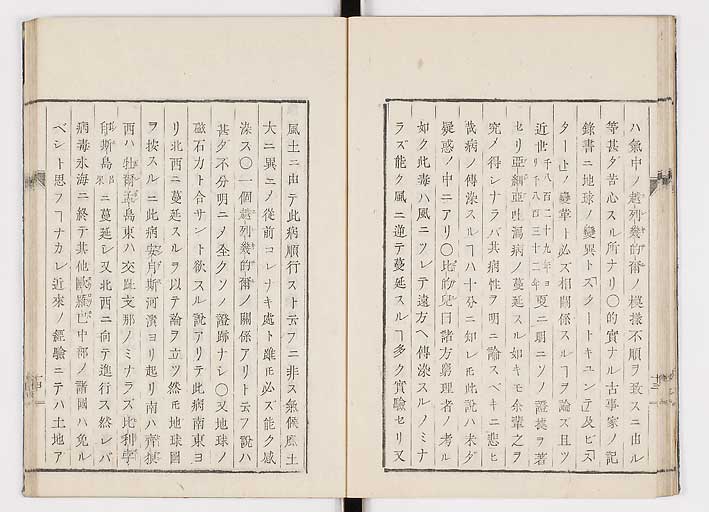 ハ氣中ノ越列幾的爾ノ模樣不順ヲ致スニ由ル
等甚ダ苦心スル所ナリ○的實ナル古事家ノ記
錄書ニ地球ノ變異トスクートキユンテ及ビス
ター上ノ變革ト必ズ相關係スルヿヲ論ズ且ツ
近世千八百二十九年ヨリ千八百三十二年更ニ明ニソノ證據ヲ著
セリ亞細亞吐瀉病ノ蔓延スル如キモ余輩之ヲ
究メ得シナラバ其病性ヲ明ニ論スベキニ悲ヒ
哉病ノ傳染スルヿハ十分ニ知レ𪜈此說ハ未ダ
疑惑ノ中ニアリ○比的兒曰諸方窮理者ノ考ル
如ク此毒ハ風ニツレテ遠方ヘ傳染スルノミナ
ラズ能ク風ニ逆テ蔓延スルヿ多ク實驗セリ又
風土ニ由テ此病順行スト云フニ非ス氣候風土
大ニ異ニメ從前コレナキ處ト雖𪜈必ズ能ク感
染ス○一個越列幾的爾ノ關係アリト云フ說ハ
甚ダ不分明ニメ全クソノ證跡ナシ○又地球ノ
磁石力ト合サント欲スル說アリテ此病南東ヨ
リ北西ニ蔓延スルヲ以テ論ヲ立ツ然𪜈地球圖
ヲ按スルニ此病安月斯河濱ヨリ起リ南ハ齊狼
西ハ牡爾孟島東ハ交趾支那ノミナラズ比利亭
印斯島ニ蔓延シ又北西ニ向テ進行ス然レバ
病毒氷海ニ終テ其他歐羅巴中部ノ諸國ハ免ル
ベシト思フヿナカレ近來ノ經驗ニテハ土地ア